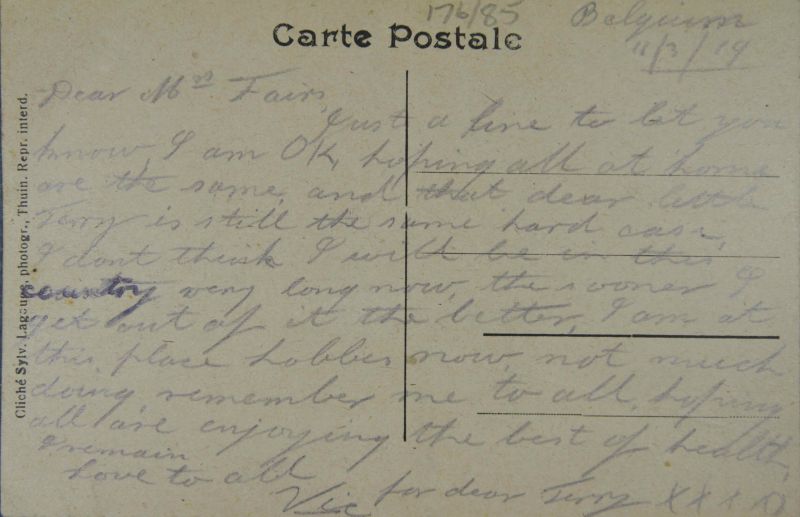 176/85
Carte Postale
Belguim
11/3/19
Dear Mrs Fairs,
Just a line to let you
know, I am OK, hoping all at home
are the same, and that dear little
Terry is still the same hard case,
I dont think I will be in this
country very long now, the sooner I
get out of it the better, I am at
this place Lobbes now, not much
doing, remember me to all, hoping
all are enjoying the best of health,
I remain
love to all
Vic for dear Terry X X X X
Cliché Sylv. Lagoupe, photogr., Thuin. Repr. interd.